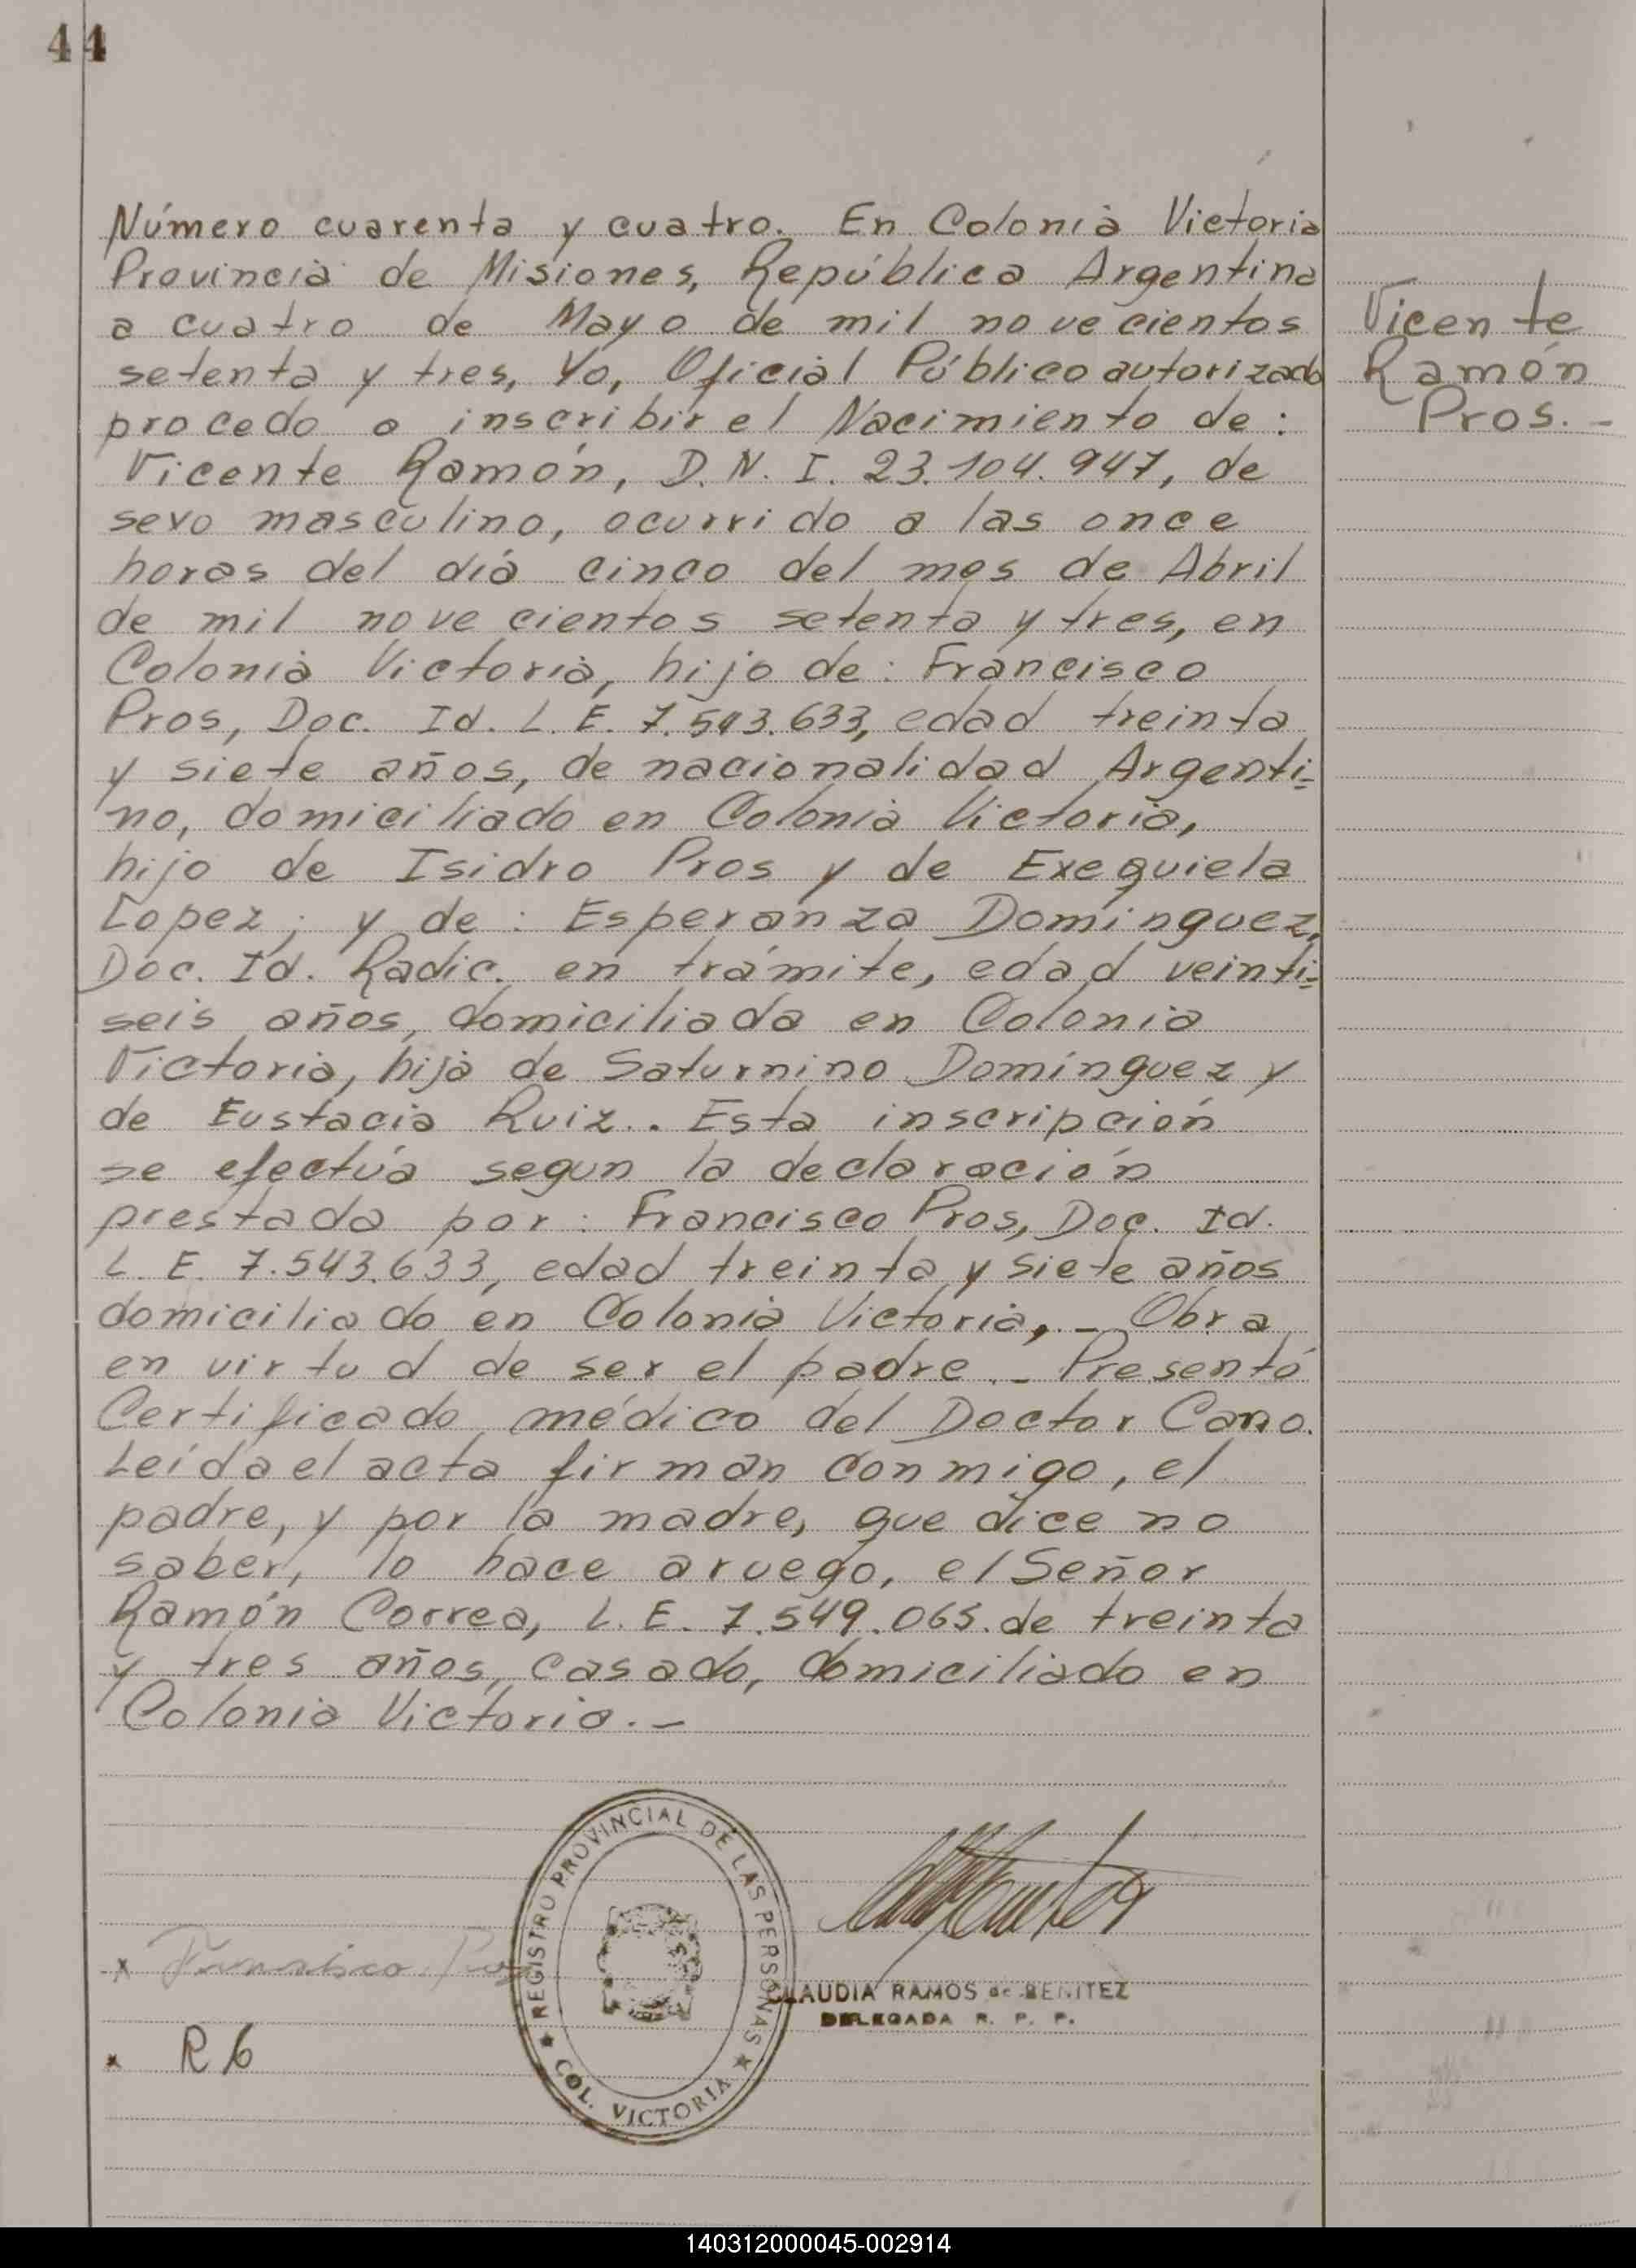 44
Número cuarenta y cuatro. En Colonia Victoria
Provincia de Misiones, República Argentina
a cuatro de Mayo de mil novecientos
setenta y tres, Yo, Oficial Público autorizado
procedo a inscribir el Nacimiento de:
Vicente Ramón, D.N.I. 23.104.947, de
sexo masculino, ocurrido a las once
horas del día cinco del mes de Abril
de mil novecientos setenta y tres, en
Colonia Victoria, hijo de: Francisco
Pros, Doc. Id. L.E. 7.543.633, edad treinta
y siete años, de nacionalidad Argenti-
no, domiciliado en Colonia Victoria,
hijo de Isidro Pros y de Exequiela
Lopez; y de: Esperanza Domínguez,
Doc. Id. Radic. en trámite, edad veinti-
seis años, domiciliada en Colonia
Victoria, hija de Saturnino Domínguez y
de Eustacia Ruiz.. Esta inscripción
se efectúa segun la declaración
prestada por: Francisco Pros, Doc. Id.
L.E. 7.543.633, edad treinta y siete años
domiciliado en Colonia Victoria,.- Obra
en virtud de ser el padre.- Presentó
Certificado médico del Doctor Cano.
Leída el acta firman conmigo, el
padre, y por la madre, que dice no
saber, lo hace aruego, el Señor
Ramón Correa, L.E. 7.549.065. de treinta
y tres años, casado, domiciliado en
Colonia Victoria.-
Vicente
Ramón
Pros.-
REGISTRO PROVINCIAL DE LAS PERSONAS
COL. VICTORIA
x Francisco Pros
CLAUDIA RAMOS de BENITEZ
DELEGADA R. P. P.
x R6
140312000045-002914